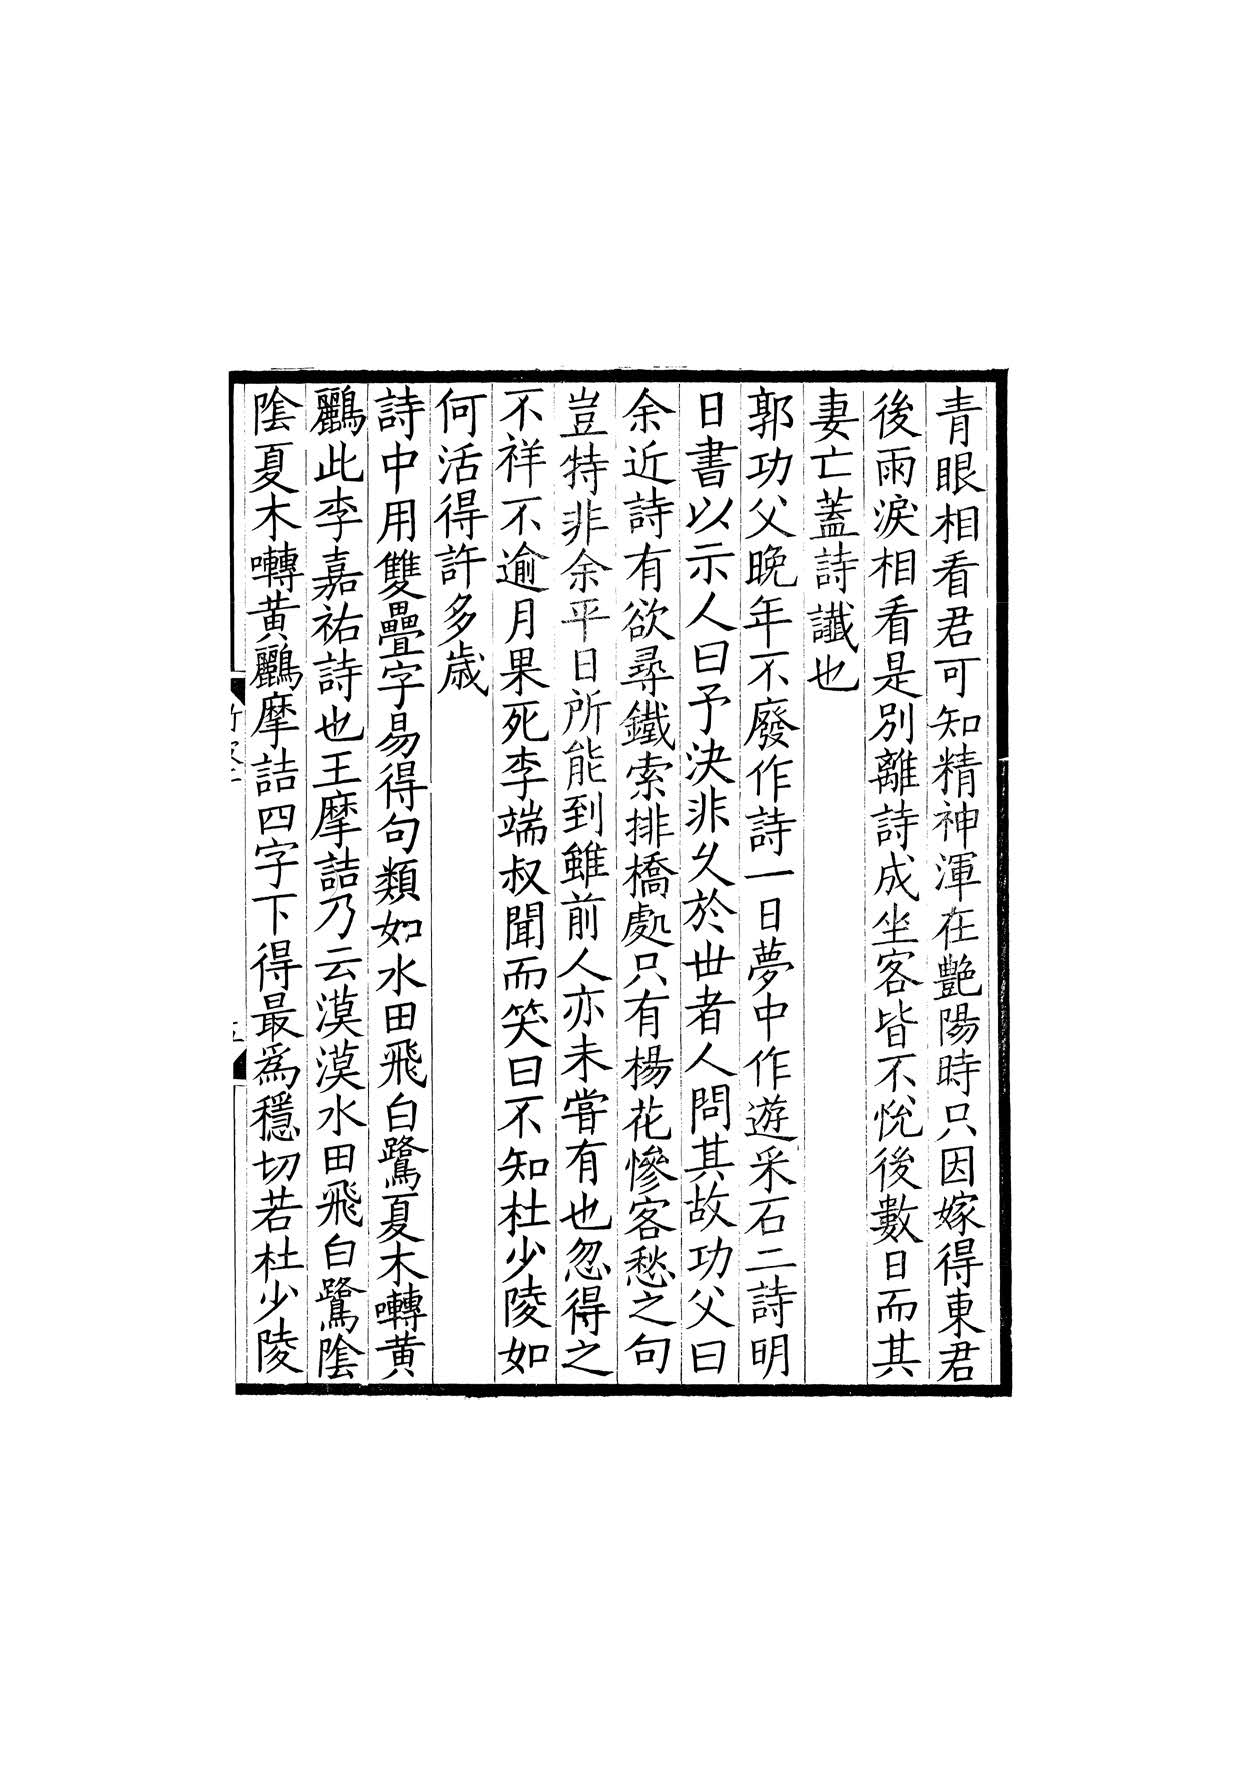 青眼相看君可知精神渾在艷陽時只因嫁得東君
後雨淚相看是別離詩成坐客皆不悅後數日而其
妻亡蓋詩讖也
郭功父晚年不廢作詩一日夢中作遊采石二詩明
日書以示人曰予決非久於世者人問其故功父曰
余近詩有欲尋鐵索排橋處只有楊花慘客愁之句
豈特非余平日所能到雖前人亦未嘗有也忽得之
不祥不逾月果死李端叔聞而笑曰不知杜少陵如
何活得許多歲
詩中用雙疊字易得句類如水田飛白鷺夏木囀黃
鸝此李嘉祐詩也王摩詰乃云漠漠水田飛白鷺陰
陰夏木囀黃鸝摩詰四字下得最為穩切若杜少陵